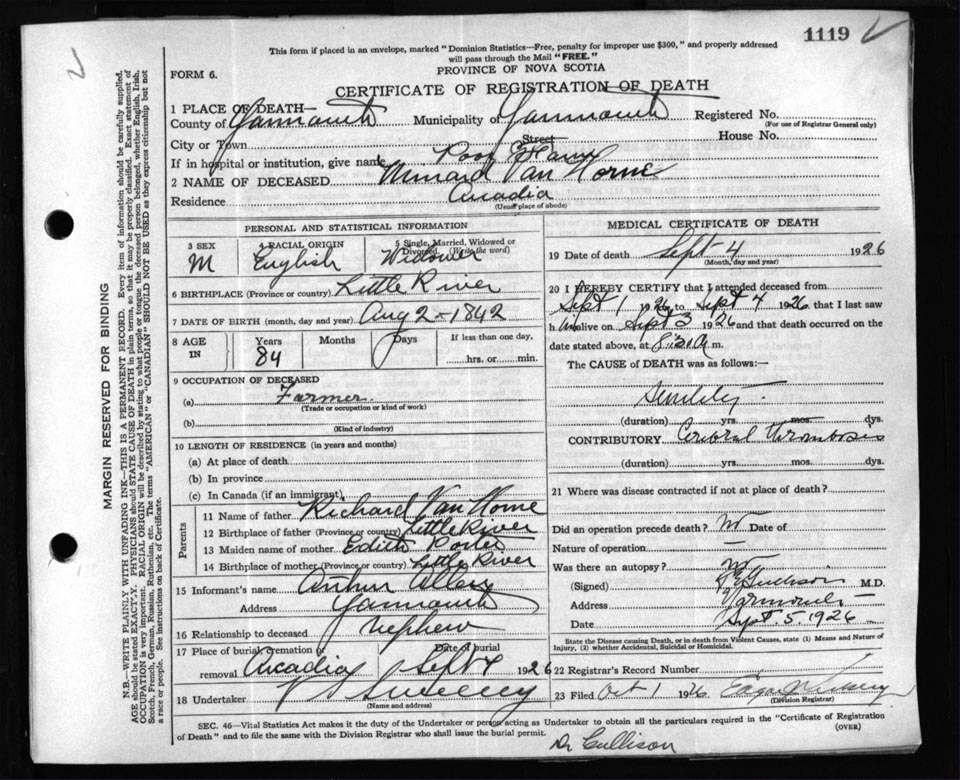 1119
This form if placed in an envelope, marked "Dominion Statistics—Free, penalty for improper use $300," and properly addressed
will pass through the Mail "FREE."
FORM 6.
PROVINCE OF NOVA SCOTIA
CERTIFICATE OF REGISTRATION OF DEATH
1 PLACE OF DEATH—
County of Yarmouth Municipality of Yarmouth Registered No.
(For use of Registrar General only)
City or Town Street House No.
If in hospital or institution, give name Poor Farm
2 NAME OF DECEASED Minard Van Horne
Residence Arcadia
(Usual place of abode)
PERSONAL AND STATISTICAL INFORMATION
3 SEX 4 RACIAL ORIGIN 5 Single, Married, Widowed or
Divorced. (Write the word)
M English Widower
6 BIRTHPLACE (Province or country) Little River
7 DATE OF BIRTH (month, day and year) Aug 2 - 1842
8 AGE IN Years Months Days If less than one day,
84 hrs. or min.
9 OCCUPATION OF DECEASED
(a) Farmer
(Trade or occupation or kind of work)
(b)
(Kind of industry)
10 LENGTH OF RESIDENCE (in years and months)
(a) At place of death
(b) In province
(c) In Canada (if an immigrant)
Parents
11 Name of father Richard Van Horne
12 Birthplace of father (Province or country) Little River
13 Maiden name of mother Edith Porter
14 Birthplace of mother (Province or country) Little River
15 Informant's name Arthur Allen
Address Yarmouth
16 Relationship to deceased nephew
17 Place of burial, cremation or removal Arcadia Date of burial Sept 4 1926
18 Undertaker V Sweeney
(Name and address)
MEDICAL CERTIFICATE OF DEATH
19 Date of death Sept 4 1926
(Month, day and year)
20 I HEREBY CERTIFY that I attended deceased from
Sept 1 1926 to Sept 4 1926 that I last saw
him alive on Sept 3 1926 and that death occurred on the
date stated above, at A m.
The CAUSE of DEATH was as follows:—
Senility
(duration) yrs. mos. dys.
CONTRIBUTORY Cerebral Thrombosis
(duration) yrs. mos. dys.
21 Where was disease contracted if not at place of death?
Did an operation precede death? no Date of
Nature of operation —
Was there an autopsy? no
(Signed) M.D.
Address Yarmouth
Date Sept. 5. 1926
State the Disease causing Death, or in death from Violent Causes, state (1) Means and Nature of
Injury, (2) whether Accidental, Suicidal or Homicidal.
22 Registrar's Record Number
23 Filed Oct 1 1926
(Division Registrar)
SEC. 46—Vital Statistics Act makes it the duty of the Undertaker or person acting as Undertaker to obtain all the particulars required in the "Certificate of Registration
of Death" and to file the same with the Division Registrar who shall issue the burial permit. (OVER)
Dr Cullison
MARGIN RESERVED FOR BINDING
N.B.—WRITE PLAINLY WITH UNFADING INK—THIS IS A PERMANENT RECORD. Every item of information should be carefully supplied.
AGE should be stated EXACTLY. PHYSICIANS should STATE CAUSE OF DEATH in plain terms, so that it may be properly classified. Exact statement of
OCCUPATION is very important. RACIAL ORIGIN will be described by stating to what people or tongue the deceased person belonged, whether English, Irish,
Scotch, French, German, Russian, Ruthenian, etc. The terms "AMERICAN" or "CANADIAN" SHOULD NOT BE USED as they express citizenship but not
a race or people. See instructions on back of Certificate.